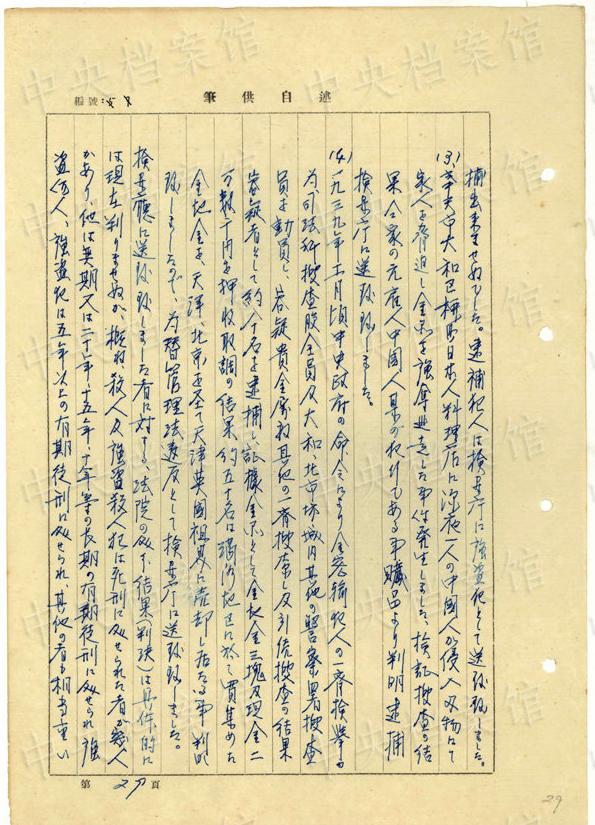 編號:
述自供筆
捕出来ませぬでした。逮捕犯人は検察庁に強盗犯として送致致しました。
(3)、奉天市大和区 町日本人料理店に深夜一人の中国人が侵入刃物にて
家人を脅迫し金品を強奪逃走した事件発生しました、検証捜査の結
果 家の元店人中国人某の犯行である事贓品より判明逮捕
検察庁に送致致しました。
(4)、一九三九年十一月頃中央政府の命令により金密輸犯人の一斉検挙の
為司法科捜査股全員及大和、北市場城内其他の警察署捜査
員を動員し、容疑貴金属商其他の一斉捜索し及引続捜査の結果
容疑者として約八十名を逮捕し証拠金品として金地金三塊及現金二
万数千円を押収取調の結果、約五十名は満洲地区に於て買集めた
金地金を、天津、北京 天津英国租界に売却し居たる事判明
致しましたので、為替管理法違反として検察庁に送致致しました。
検察庁に送致致しました者に対する、法院の 結果(判決)は具体的に
は現在判りませぬが、概ね殺人及強盗殺人犯は死刑に処せられた者が幾人
かあり、他は無期又は二十年、十五年、十年等の長期の有期徒刑に処せられ強
盗 人、強盗犯は五年以上の有期徒刑に処せられ、其他の者も相当重い
第29頁
29
中央档案馆